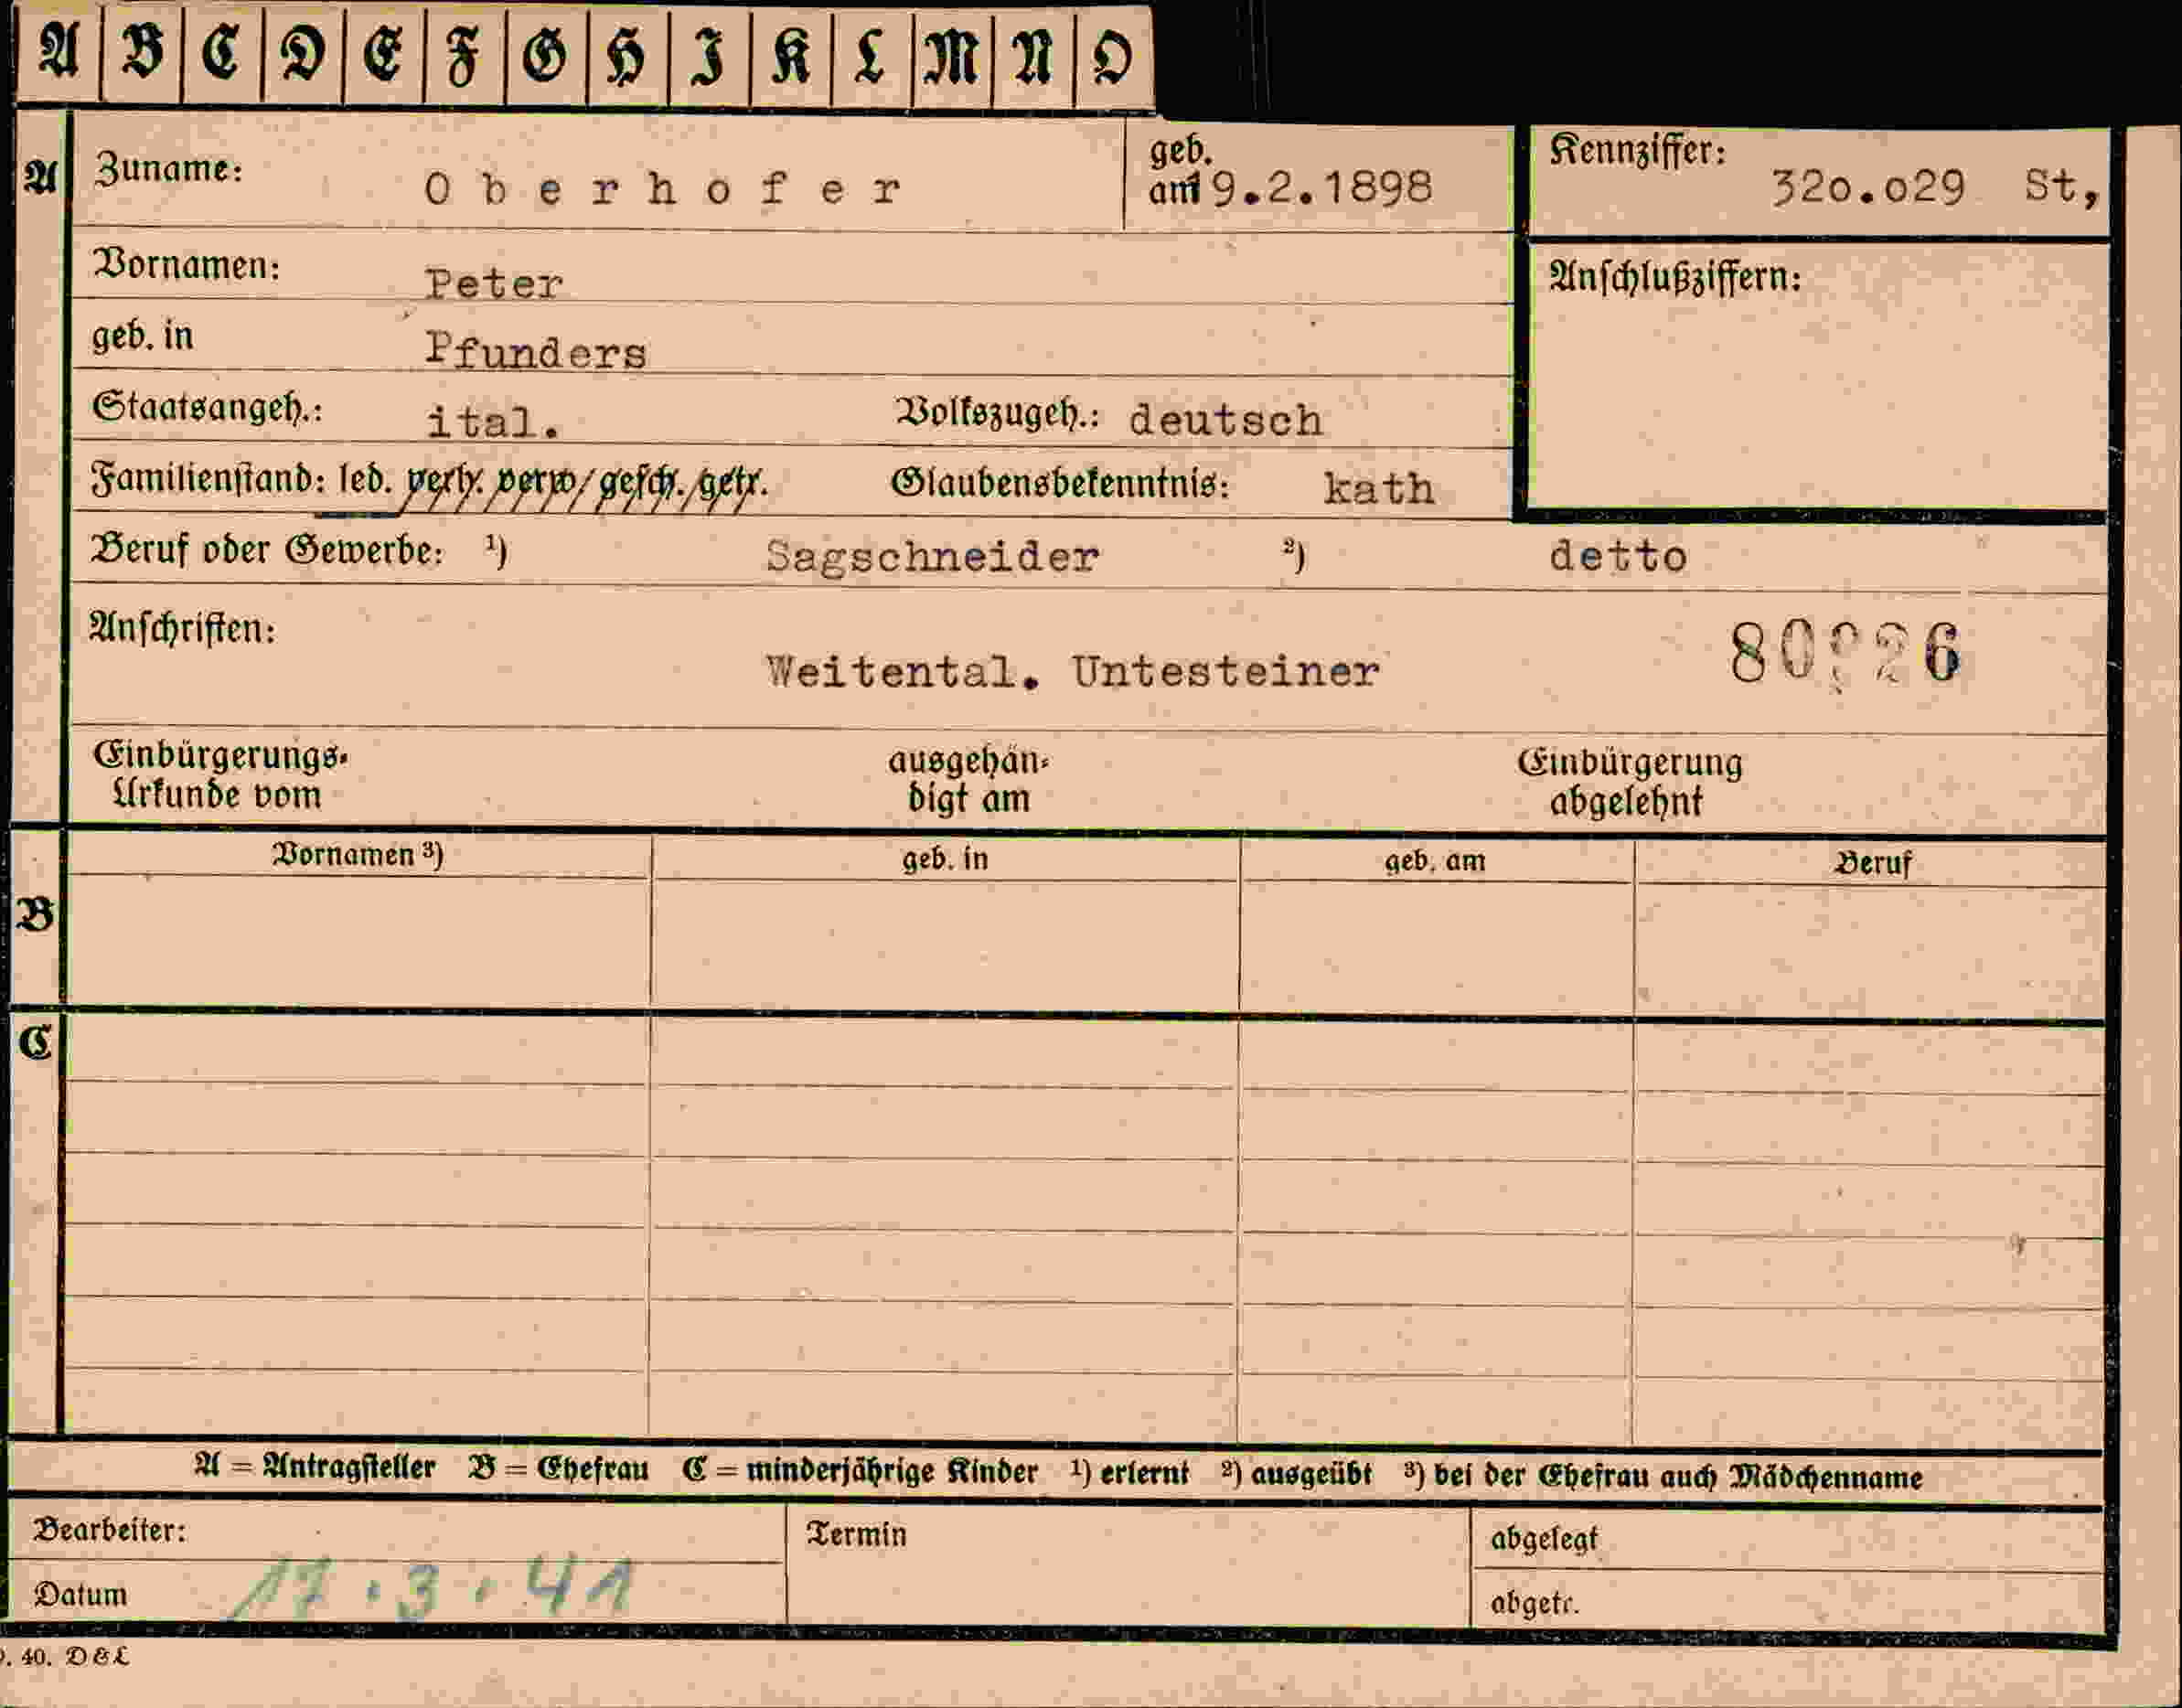 A B C D E F G H I K L M N O
A Zuname: Oberhofer geb. am 19.2.1898 Kennziffer: 32o.o29 St,
Vornamen: Peter Anschlußziffern:
geb. in Pfunders
Staatsangeh.: ital. Volkszugeh.: deutsch
Familienstand: led. verh. verw. gesch. getr. Glaubensbekenntnis: kath
Beruf oder Gewerbe: ¹) Sagschneider ²) detto
Anschriften:
Weitental. Untesteiner
Einbürgerungs- ausgehän- Einbürgerung
Urkunde vom digt am abgelehnt
Vornamen ³) geb. in geb. am Beruf
B
C
A = Antragsteller B = Ehefrau C = minderjährige Kinder ¹) erlernt ²) ausgeübt ³) bei der Ehefrau auch Mädchenname
Bearbeiter: Termin abgelegt
Datum 17.3.41 abgetr.
40. D & L